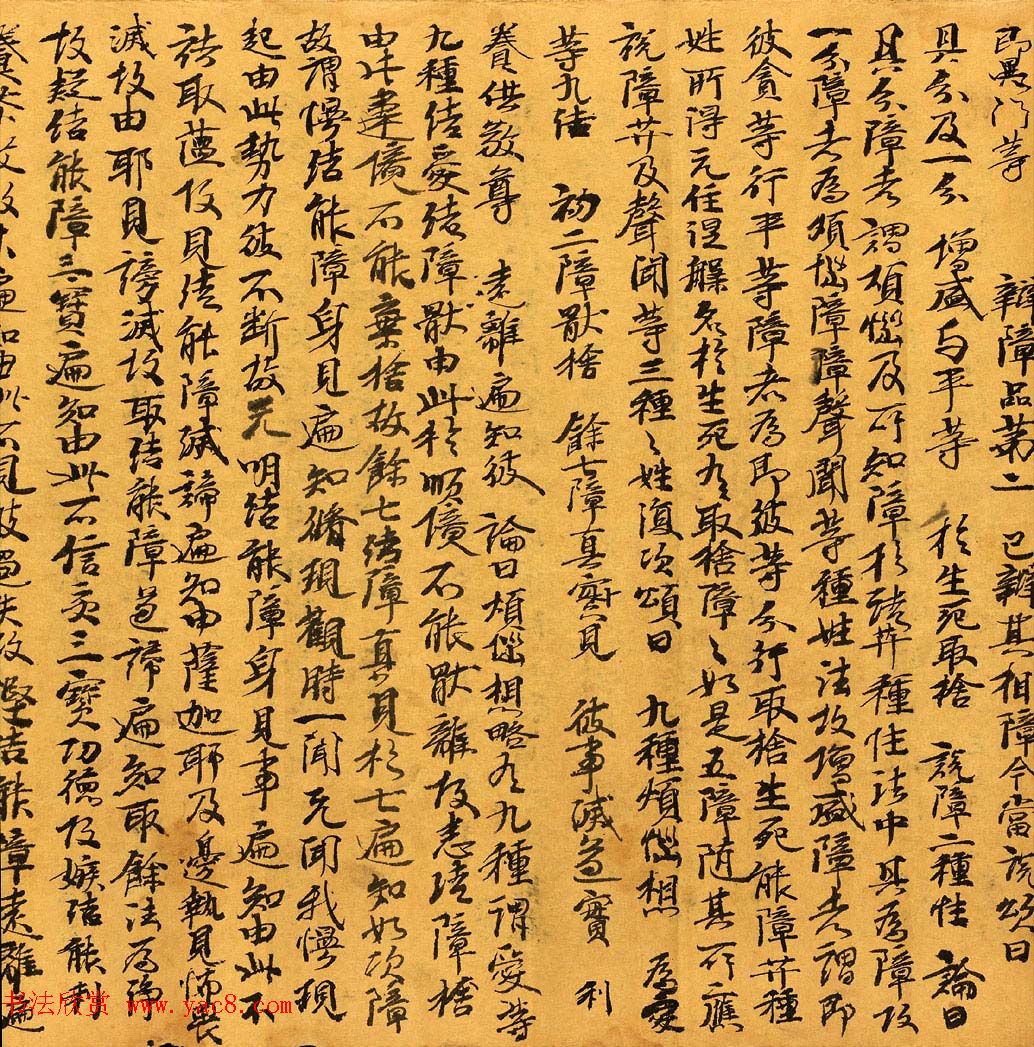 即異門等 辯障品第二 已辯其相障今當說頌曰
具分及一分 增盛与平等 於生死取捨 說障二種性 論曰
具分障者謂煩惱及所知障於諸𦬇種性法中具為障故
一分障者為煩惱障障聲聞等種姓法故增盛障者謂即
彼貪等行平等障者為即彼等分行取捨生死能障𦬇種
姓所得无住涅槃名於生死有取捨障々如是五障随其所應
說障𦬇及聲聞等三種々姓復次頌曰 九種煩惱想 為愛
等九結 初二障猒捨 餘七障真實見 彼事滅道寶 利
養供敬尊 遠離遍知彼 論曰煩惱想略有九種謂愛等
九種結愛結障猒由此於順境不能猒離故恚結障捨
由此違境不能棄捨故餘七結障真見於七遍知如次障
故謂慢結能障身見遍知脩現觀時一聞无聞我慢現
起由此勢力彼不断故无明結能障身見事遍知由此不
諸取蕴故見結能障滅諦遍知由薩迦耶及邊執見怖畏
滅故由耶見謗滅故取結能障道諦遍知取餘法為淨
故疑結能障三寶遍知由此不信受三寶功德故嫉結能利
遍知由此不見彼過失故慳結能障遠離遍
书法欣赏 www.yac8.com